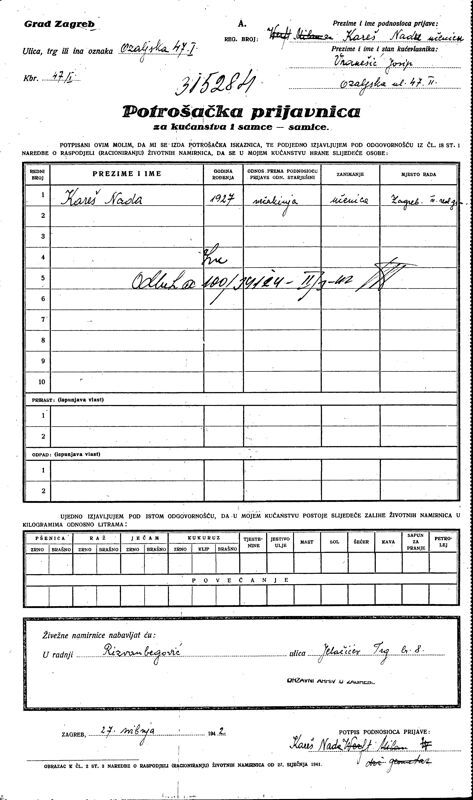 Grad Zagreb
A.
Prezime i ime podnosioca prijave:
REG. BROJ:
Kareš Nada učenica
Ulica, trg ili ina oznaka Ozaljska 47. I.
Prezime i ime i stan kućevlasnika:
Vranešić Josip
Kbr. 47/I.
Ozaljska ul. 47. II.
Potrošačka prijavnica
za kućanstva i samce — samice.
POTPISANI OVIM MOLIM, DA MI SE IZDA POTROŠAČKA ISKAZNICA, TE PODJEDNO IZJAVLJUJEM POD ODGOVORNOŠĆU IZ ČL. 18 ST. 1
NAREDBE O RASPODJELI (RACIONIRANJU) ŽIVOTNIH NAMIRNICA, DA SE U MOJEM KUĆANSTVU HRANE SLIJEDEĆE OSOBE:
REDNI BROJ PREZIME I IME GODINA ROĐENJA ODNOS PREMA PODNOSIOCU PRIJAVE ODN. STARJEŠINI ZANIMANJE MJESTO RADA
1 Kareš Nada 1927 učenica Zagreb
2
3
4
5
6
7
8
9
10
PRIRAST: (ispunjava vlast)
1
2
OTPAD: (ispunjava vlast)
1
2
UJEDNO IZJAVLJUJEM POD ISTOM ODGOVORNOŠĆU, DA U MOJEM KUĆANSTVU POSTOJE SLIJEDEĆE ZALIHE ŽIVOTNIH NAMIRNICA U
KILOGRAMIMA ODNOSNO LITRAMA:
PŠENICA RAŽ JEČAM KUKURUZ TJESTENINE JESTIVO ULJE MAST SOL ŠEĆER KAVA SAPUN ZA PRANJE PETROLEJ
ZRNO BRAŠNO ZRNO BRAŠNO ZRNO BRAŠNO ZRNO KLIP BRAŠNO
POVEĆANJE
Živežne namirnice nabavljat ću:
U radnji Rizvanbegović ulica Jelačićev Trg br. 8.
DRŽAVNI ARHIV U ZAGREBU
ZAGREB, 27. svibnja 1942.
POTPIS PODNOSIOCA PRIJAVE:
Kareš Nada
OBRAZAC K ČL. 2 ST. 3 NAREDBE O RASPODJELI (RACIONIRANJU) ŽIVOTNIH NAMIRNICA OD 27. SIJEČNJA 1941.